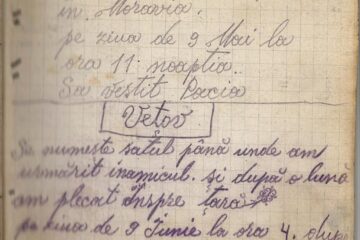 in. Moravia.
pe ziua de 9 Mai la
ora 11: noaptia.
Sa vestit Pacia
Vetov
Se numeste satul până unde am
urmărit inamicul. și după o lună
am plecat înspre țară
pe ziua de 9 Iunie la ora 4. după